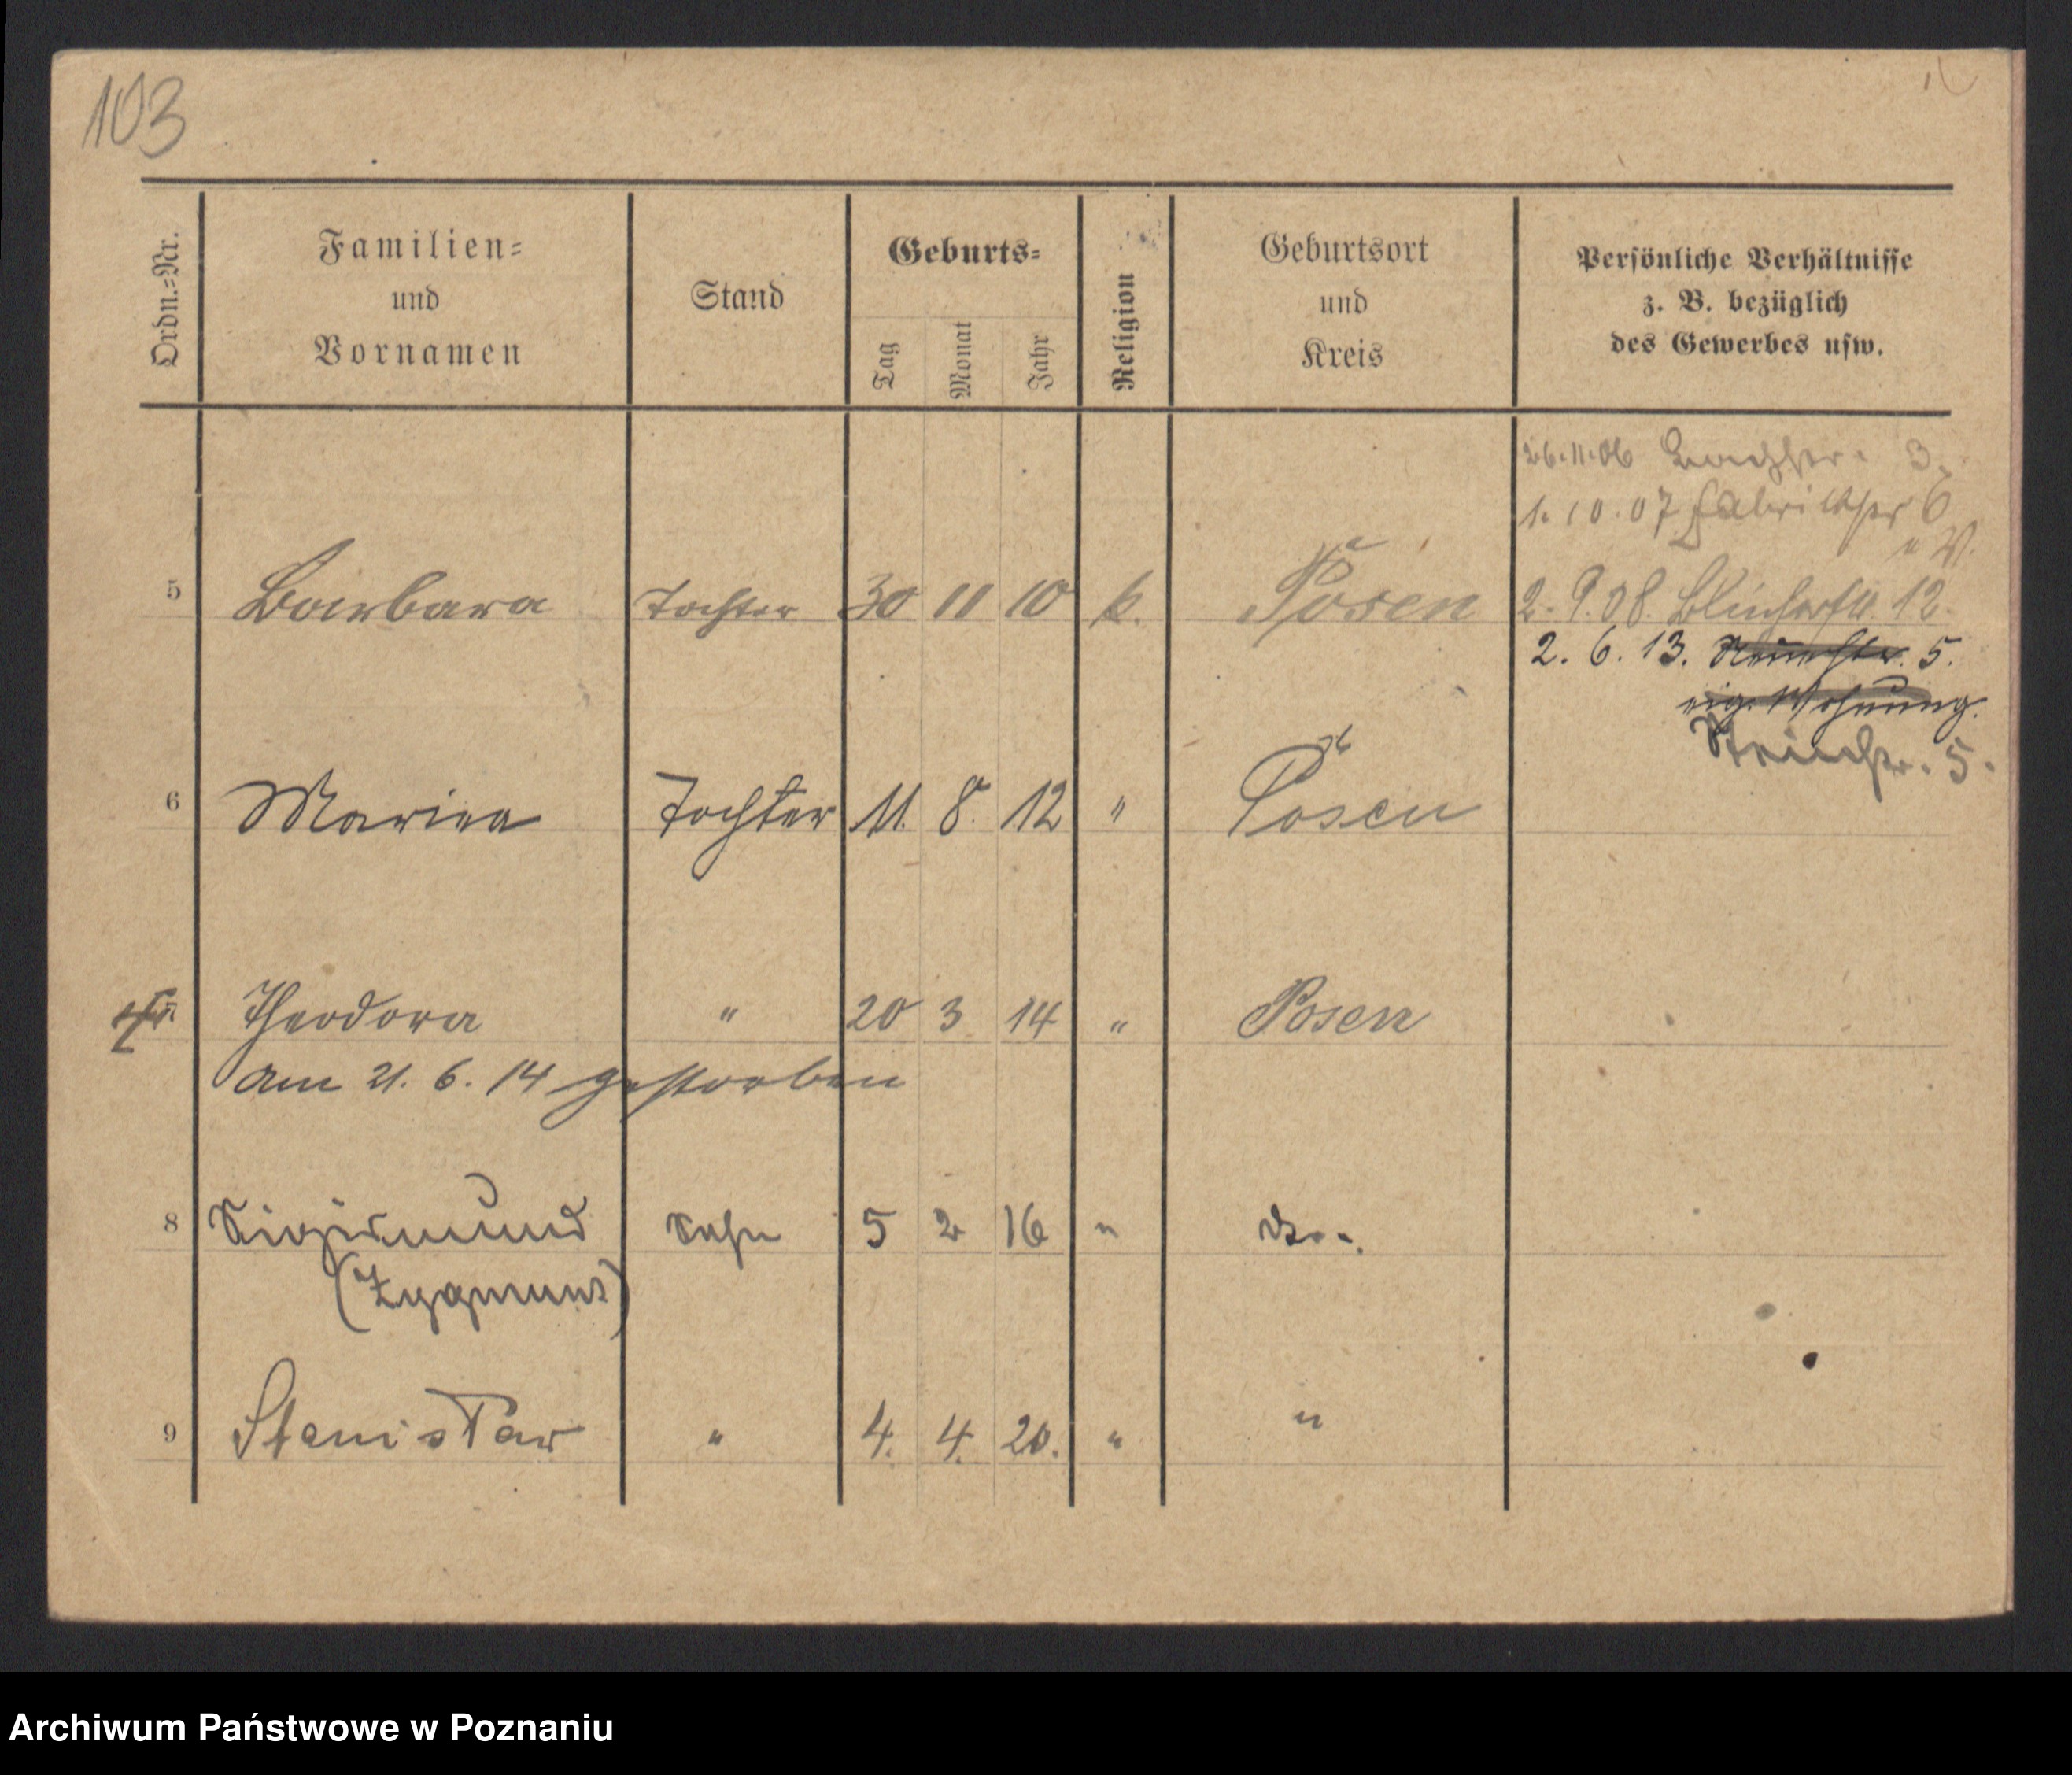 103
Ordn.=Nr.
Familien=
und
Vornamen
Stand
Geburts=
Tag
Monat
Jahr
Religion
Geburtsort
und
Kreis
Persönliche Verhältnisse
z. B. bezüglich
des Gewerbes usw.
26.11.06 3.
1.10.07 Fabrikstr 6
5 Barbara Tochter 30 11 10 k. Posen 2.9.08. 12.
2. 6. 13. 5.
eig. Wohnung.
5.
6 Marina Tochter 11. 8. 12 " Posen
Theodora " 20 3 14 " Posen
am 21. 6. 14 gestorben
8 Sigismund Sohn 5 2 16 " do.
(Zygmunt)
9 Stanisław " 4. 4. 20. " "
Archiwum Państwowe w Poznaniu